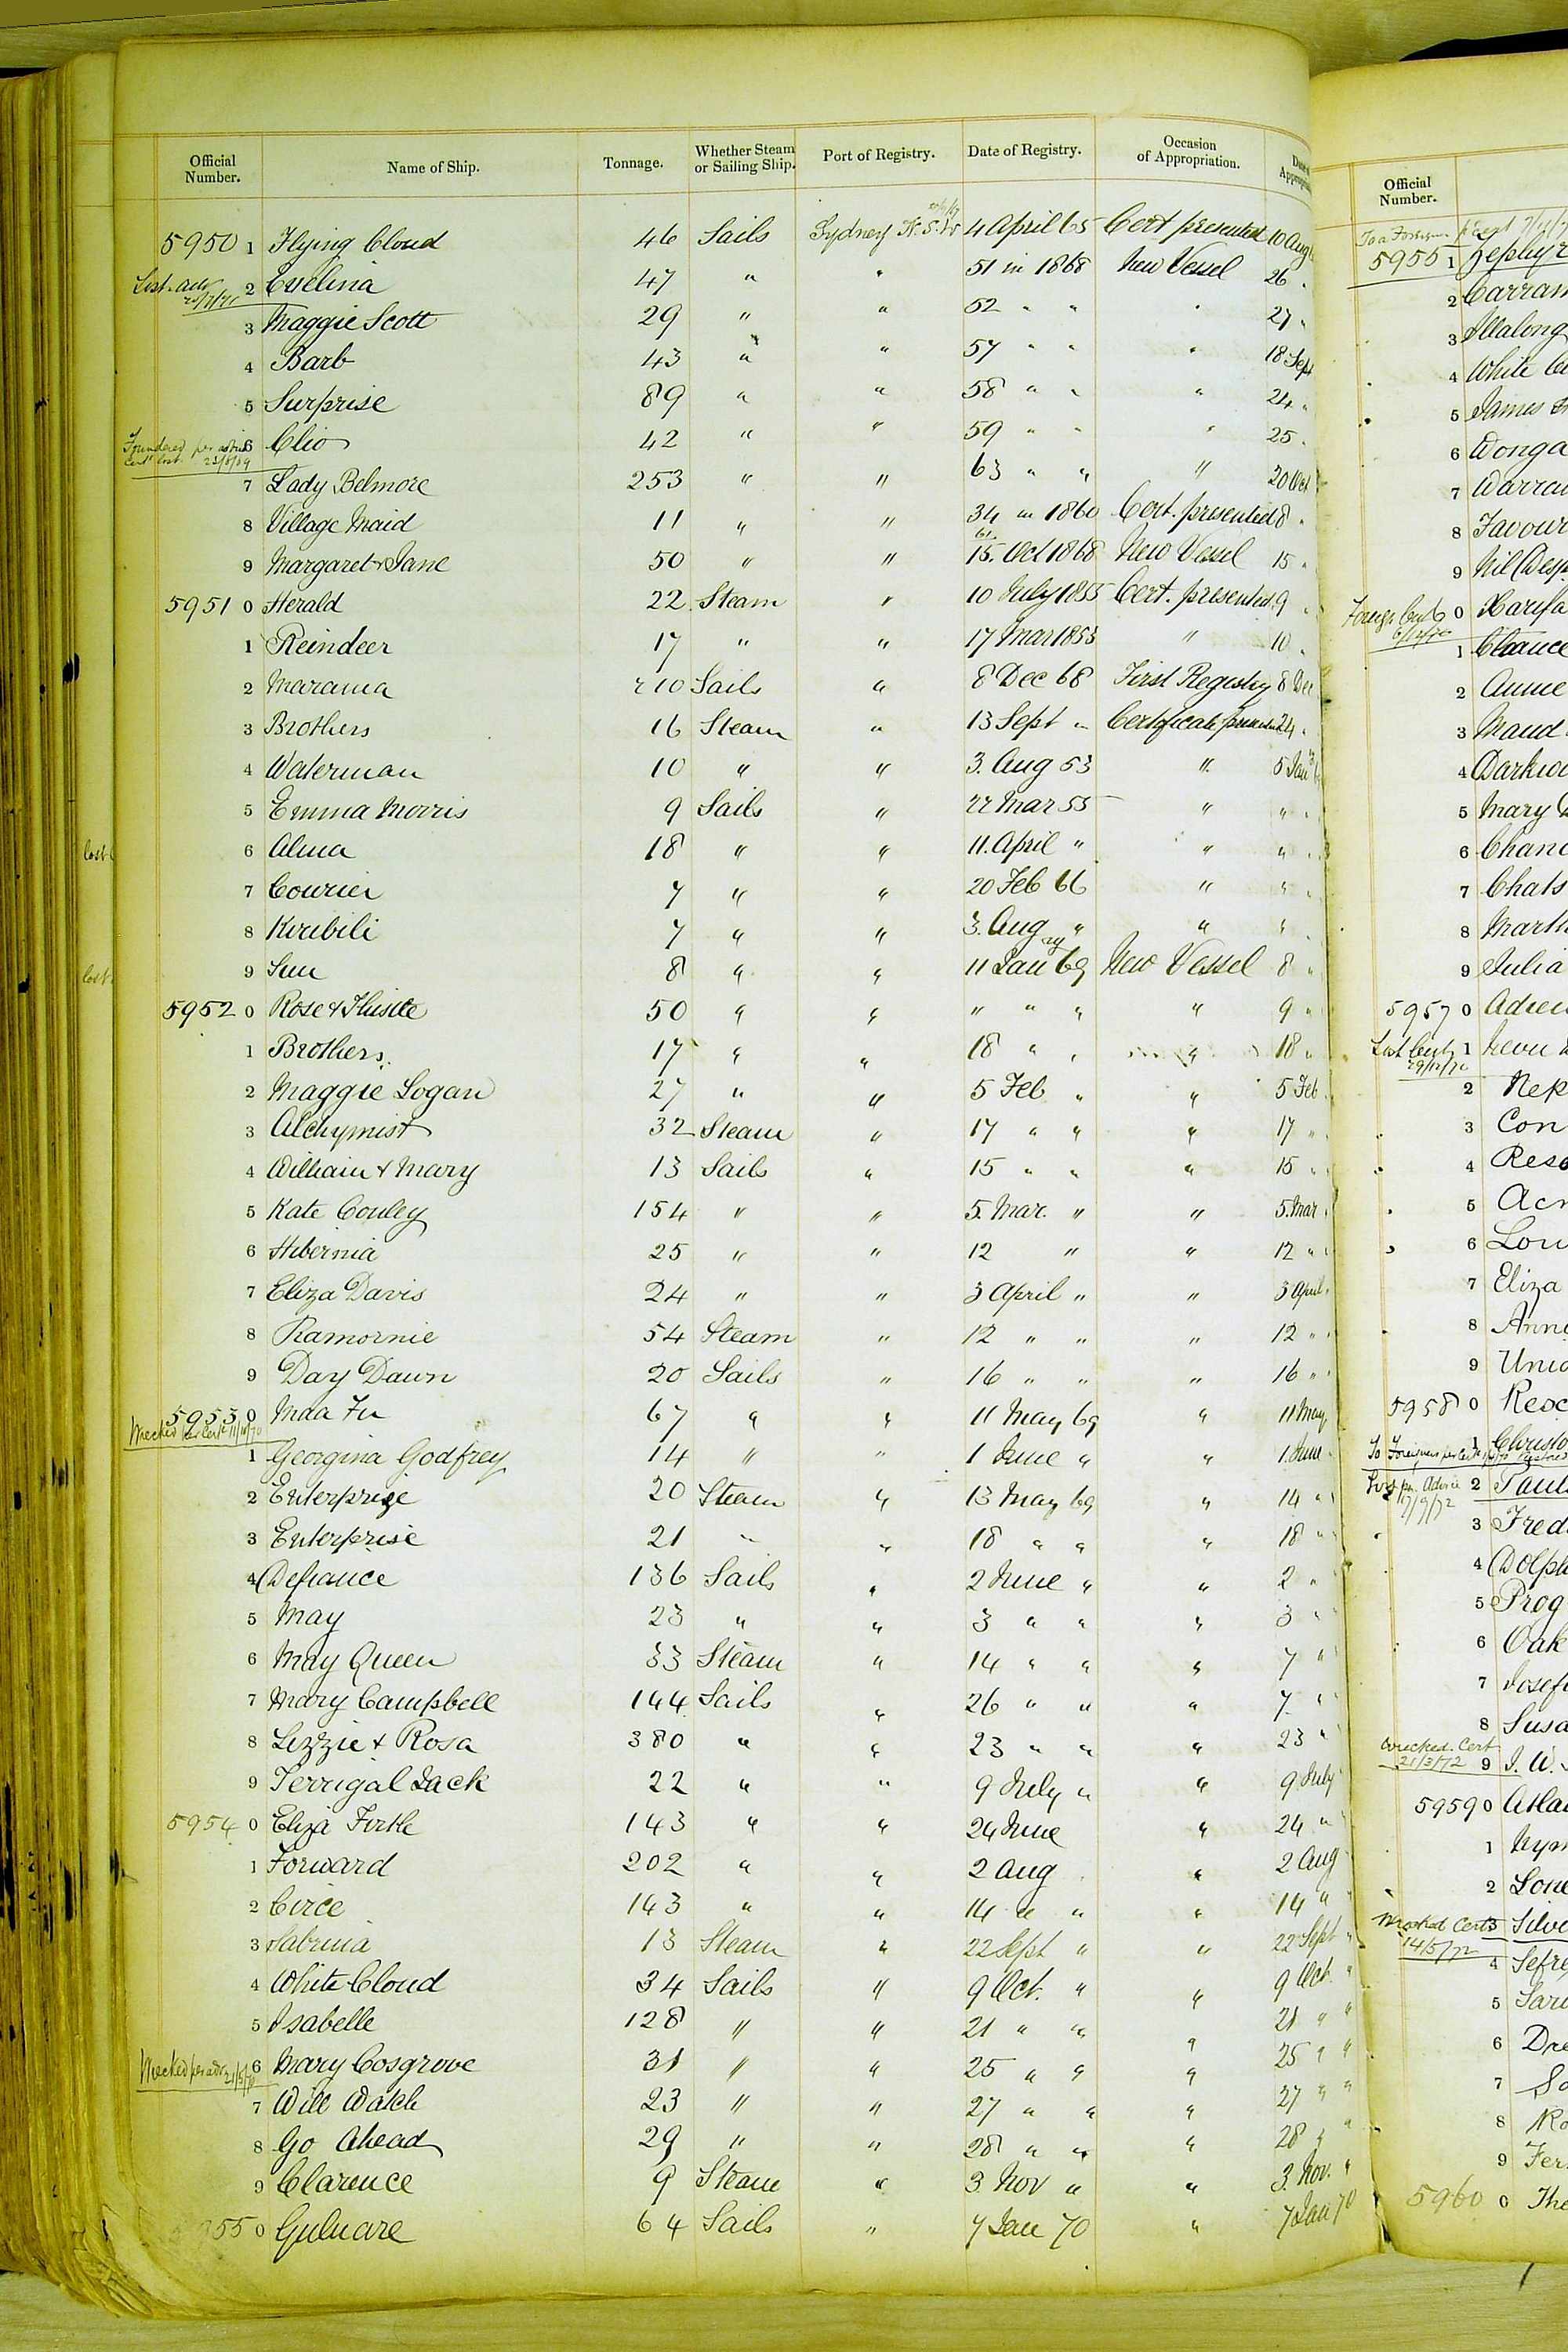 Official Number. Name of Ship. Tonnage. Whether Steam or Sailing Ship. Port of Registry. Date of Registry. Occasion of Appropriation.
5950 1 Flying Cloud 46 Sails Sydney N.S.W 4 April 65 Cert presented 10 Aug
2 Evelina 47 " " 51 in 1868 New Vessel 26 "
3 Maggie Scott 29 " " 52 " " " 27 "
4 Barb 43 " " 57 " " " 18 Sept
5 Surprise 89 " " 58 " " " 24 "
6 Clio 42 " " 59 " " " 25 "
Foundered per 23/8/69
7 Lady Belmore 253 " " 63 " " " 20 Oct
8 Village Maid 11 " " 34 in 1860 Cert. presented 8 "
9 Margaret & Jane 50 " " 15. Oct 1868 New Vessel 15 "
5951 0 Herald 22 Steam " 10 July 1855 Cert. presented 9 "
1 Reindeer 17 " " 17 Mar 1853 " 10 "
2 Marama 210 Sails " 8 Dec 68 First Registry 8 Dec
3 Brothers 16 Steam " 13 Sept " Certificate presented 24 "
4 Waterman 10 " " 3. Aug 53 " 5 Jan
5 Emma Morris 9 Sails " 22 Mar 55 " " "
6 Alma 18 " " 11. April " " " "
7 Courier 7 " " 20 Feb 66 " " "
8 Kiribili 7 " " 3. Aug " " "
9 Sun 8 " " 11 Jan 69 New Vessel 8 "
5952 0 Rose & Thistle 50 " " " " " " 9 "
1 Brothers 17 " " 18 " " " 18 "
2 Maggie Logan 27 " " 5 Feb " " 5 Feb
3 Alchymist 32 Steam " 17 " " " 17 "
4 William & Mary 13 Sails " 15 " " " 15 "
5 Kate Conley 154 " " 5. Mar. " " 5. Mar
6 Hibernia 25 " " 12 " " 12 "
7 Eliza Davis 24 " " 3 April " " 3 April
8 Ramornie 54 Steam " 12 " " " 12 "
9 Day Dawn 20 Sails " 16 " " " 16 "
5953 0 Maa Fu 67 " " 11 May 69 " 11 May
Wrecked per Cert
1 Georgina Godfrey 14 " " 1 June " " 1. June
2 Enterprize 20 Steam " 13 May 69 " 14 "
3 Enterprise 21 " " 18 " " " 18 "
4 Defiance 136 Sails " 2 June " " 2 "
5 May 23 " " 3 " " " 3 "
6 May Queen 33 Steam " 14 " " " 7 "
7 Mary Campbell 144 Sails " 26 " " " 7. "
8 Lizzie & Rosa 380 " " 23 " " " 23 "
9 Terrigal Jack 22 " " 9 July " " 9 July
5954 0 Eliza Firth 143 " " 24 June " 24 "
1 Forward 202 " " 2 Aug " 2 Aug
2 Circe 143 " " 14 " " " 14 "
3 Sabrina 13 Steam " 22 Sept " " 22 Sept "
4 White Cloud 34 Sails " 9 Oct. " " 9 Oct. "
5 Isabelle 128 " " 21 " " " 21 " "
6 Mary Cosgrove 31 " " 25 " " " 25 " "
Wrecked per adv
7 Will Watch 23 " " 27 " " " 27 " "
8 Go Ahead 29 " " 28 " " " 28 " "
9 Clarence 9 Steam " 3 Nov " " 3. Nov. "
55 0 Gulnare 64 Sails " 7 Jan 70 " 7 Jan 70
Official Number.
5955 1
2
3 Illalong
4 White
5 James
6 Wonga
7
8
9 Nil
0
Foreign Cert 6/12/70
1 Chance
2 Annie
3 Maud
4
5 Mary
6
7
8
9 Julia
5957 0
Lost Cert 1
29/12/70
2
3
4
5
6
7 Eliza
8
9
5958 0
1
Lost per Advice 2
17/9/72
3
4
5
6
7
8
Wrecked. Cert
21/3/72 9 J. W.
5959 0
1
2
Wrecked Cert 3
14/5/72
4
5
6
7
8
9
5960 0